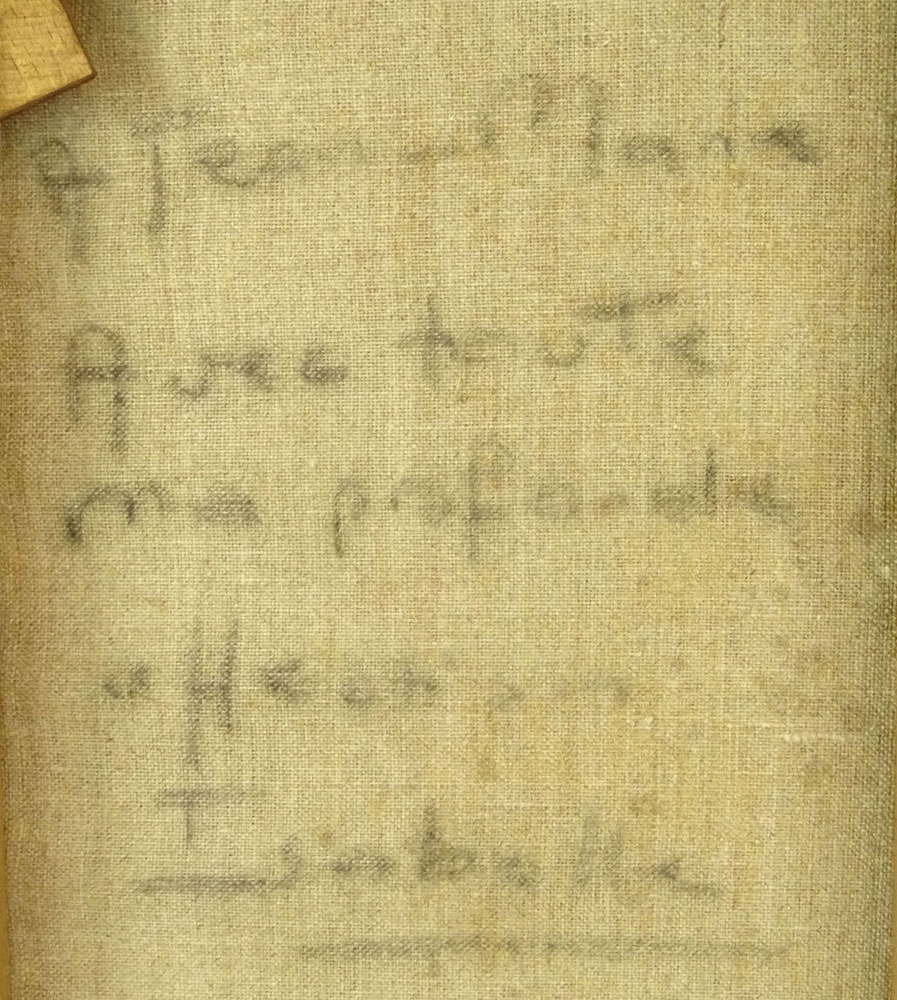 A Jean-Marie
Avec toute
ma profonde
affection